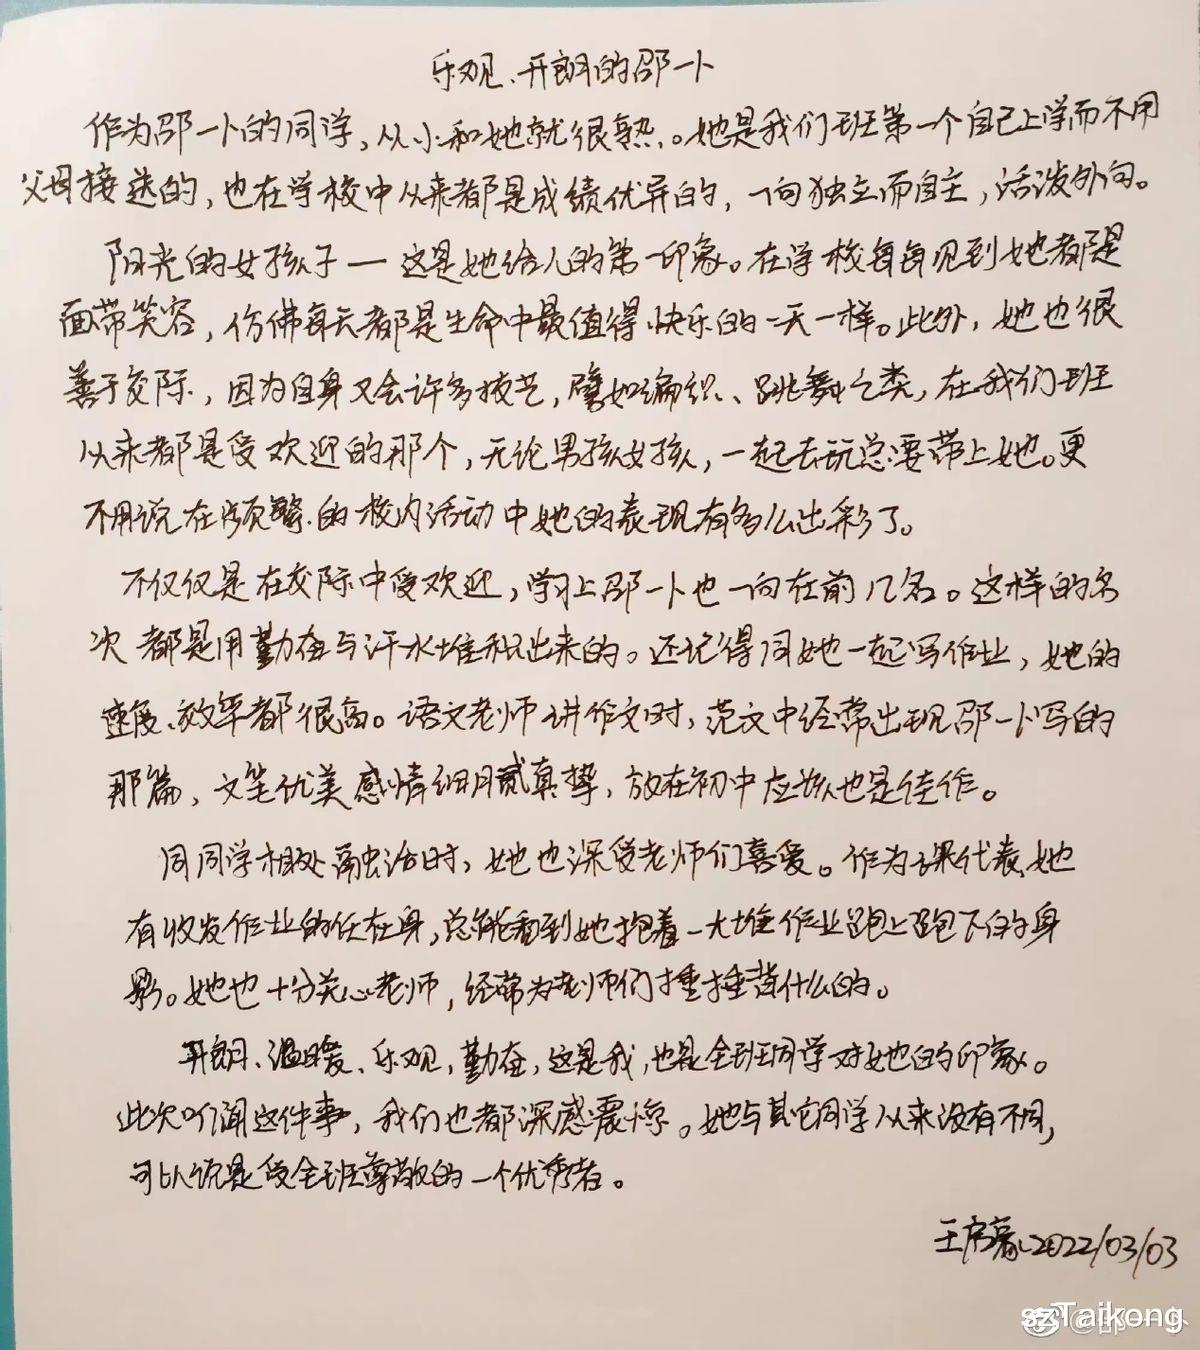 乐观、开朗的邵一卜
作为邵一卜的同学，从小和她就很熟。她是我们班第一个自己上学而不用
父母接送的，也在学校中从来都是成绩优异的，一向独立而自主，活泼外向。
阳光的女孩子一这是她给人的第一印象。在学校每每见到她都是
面带笑容，仿佛每天都是生命中最值得快乐的一天一样。此外，她也很
善于交际，因为自身又会许多技艺，譬如编织、跳舞之类，在我们班
从来都是受欢迎的那个，无论男孩女孩，一起去玩总要带上她。更
不用说在频繁的校内活动中她的表现有多么出彩了。
不仅仅是在交际中受欢迎，学习上邵一卜也一向在前几名。这样的名
次都是用勤奋与汗水堆积出来的。还记得同她一起写作业，她的
速度、效率都很高。语文老师讲作文时，范文中经常出现邵一卜写的
那篇，文笔优美感情细腻真挚，放在初中应该也是佳作。
同同学相处融洽时，她也深受老师们喜爱。作为课代表她
有收发作业的任在身，总能看到她抱着一大堆作业跑上跑下的身
影。她也十分关心老师，经常为老师们捶捶背什么的。
开朗、温暖、乐观，勤奋，这是我，也是全班同学对她的印象。
此次听闻这件事，我们也都深感震惊。她与其它同学从来没有不同，
可以说是受全班尊敬的一个优秀者。
王 2022/03/03
szTaikong